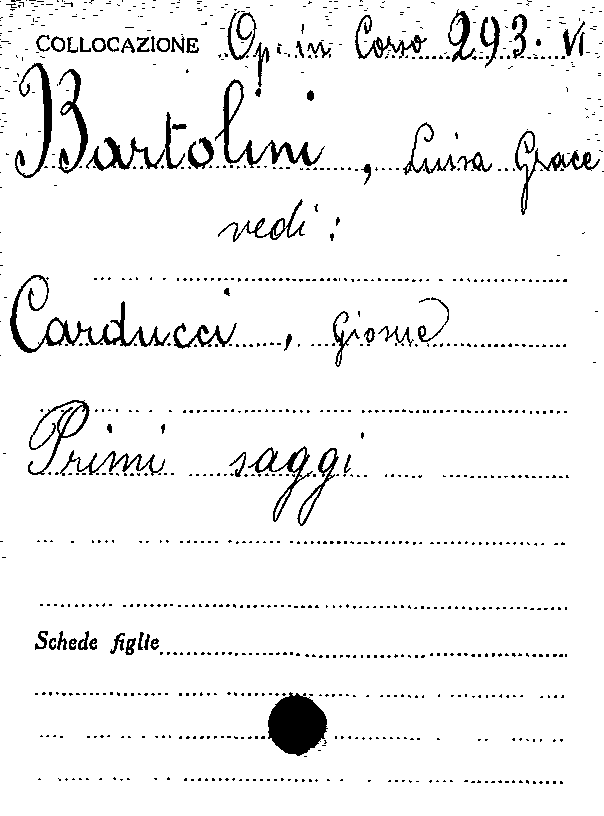 COLLOCAZIONE Op. in Corso 293. VI
Bartolini, Luisa Grace
vedi:
Carducci, Giosue
Primi saggi
Schede figlie